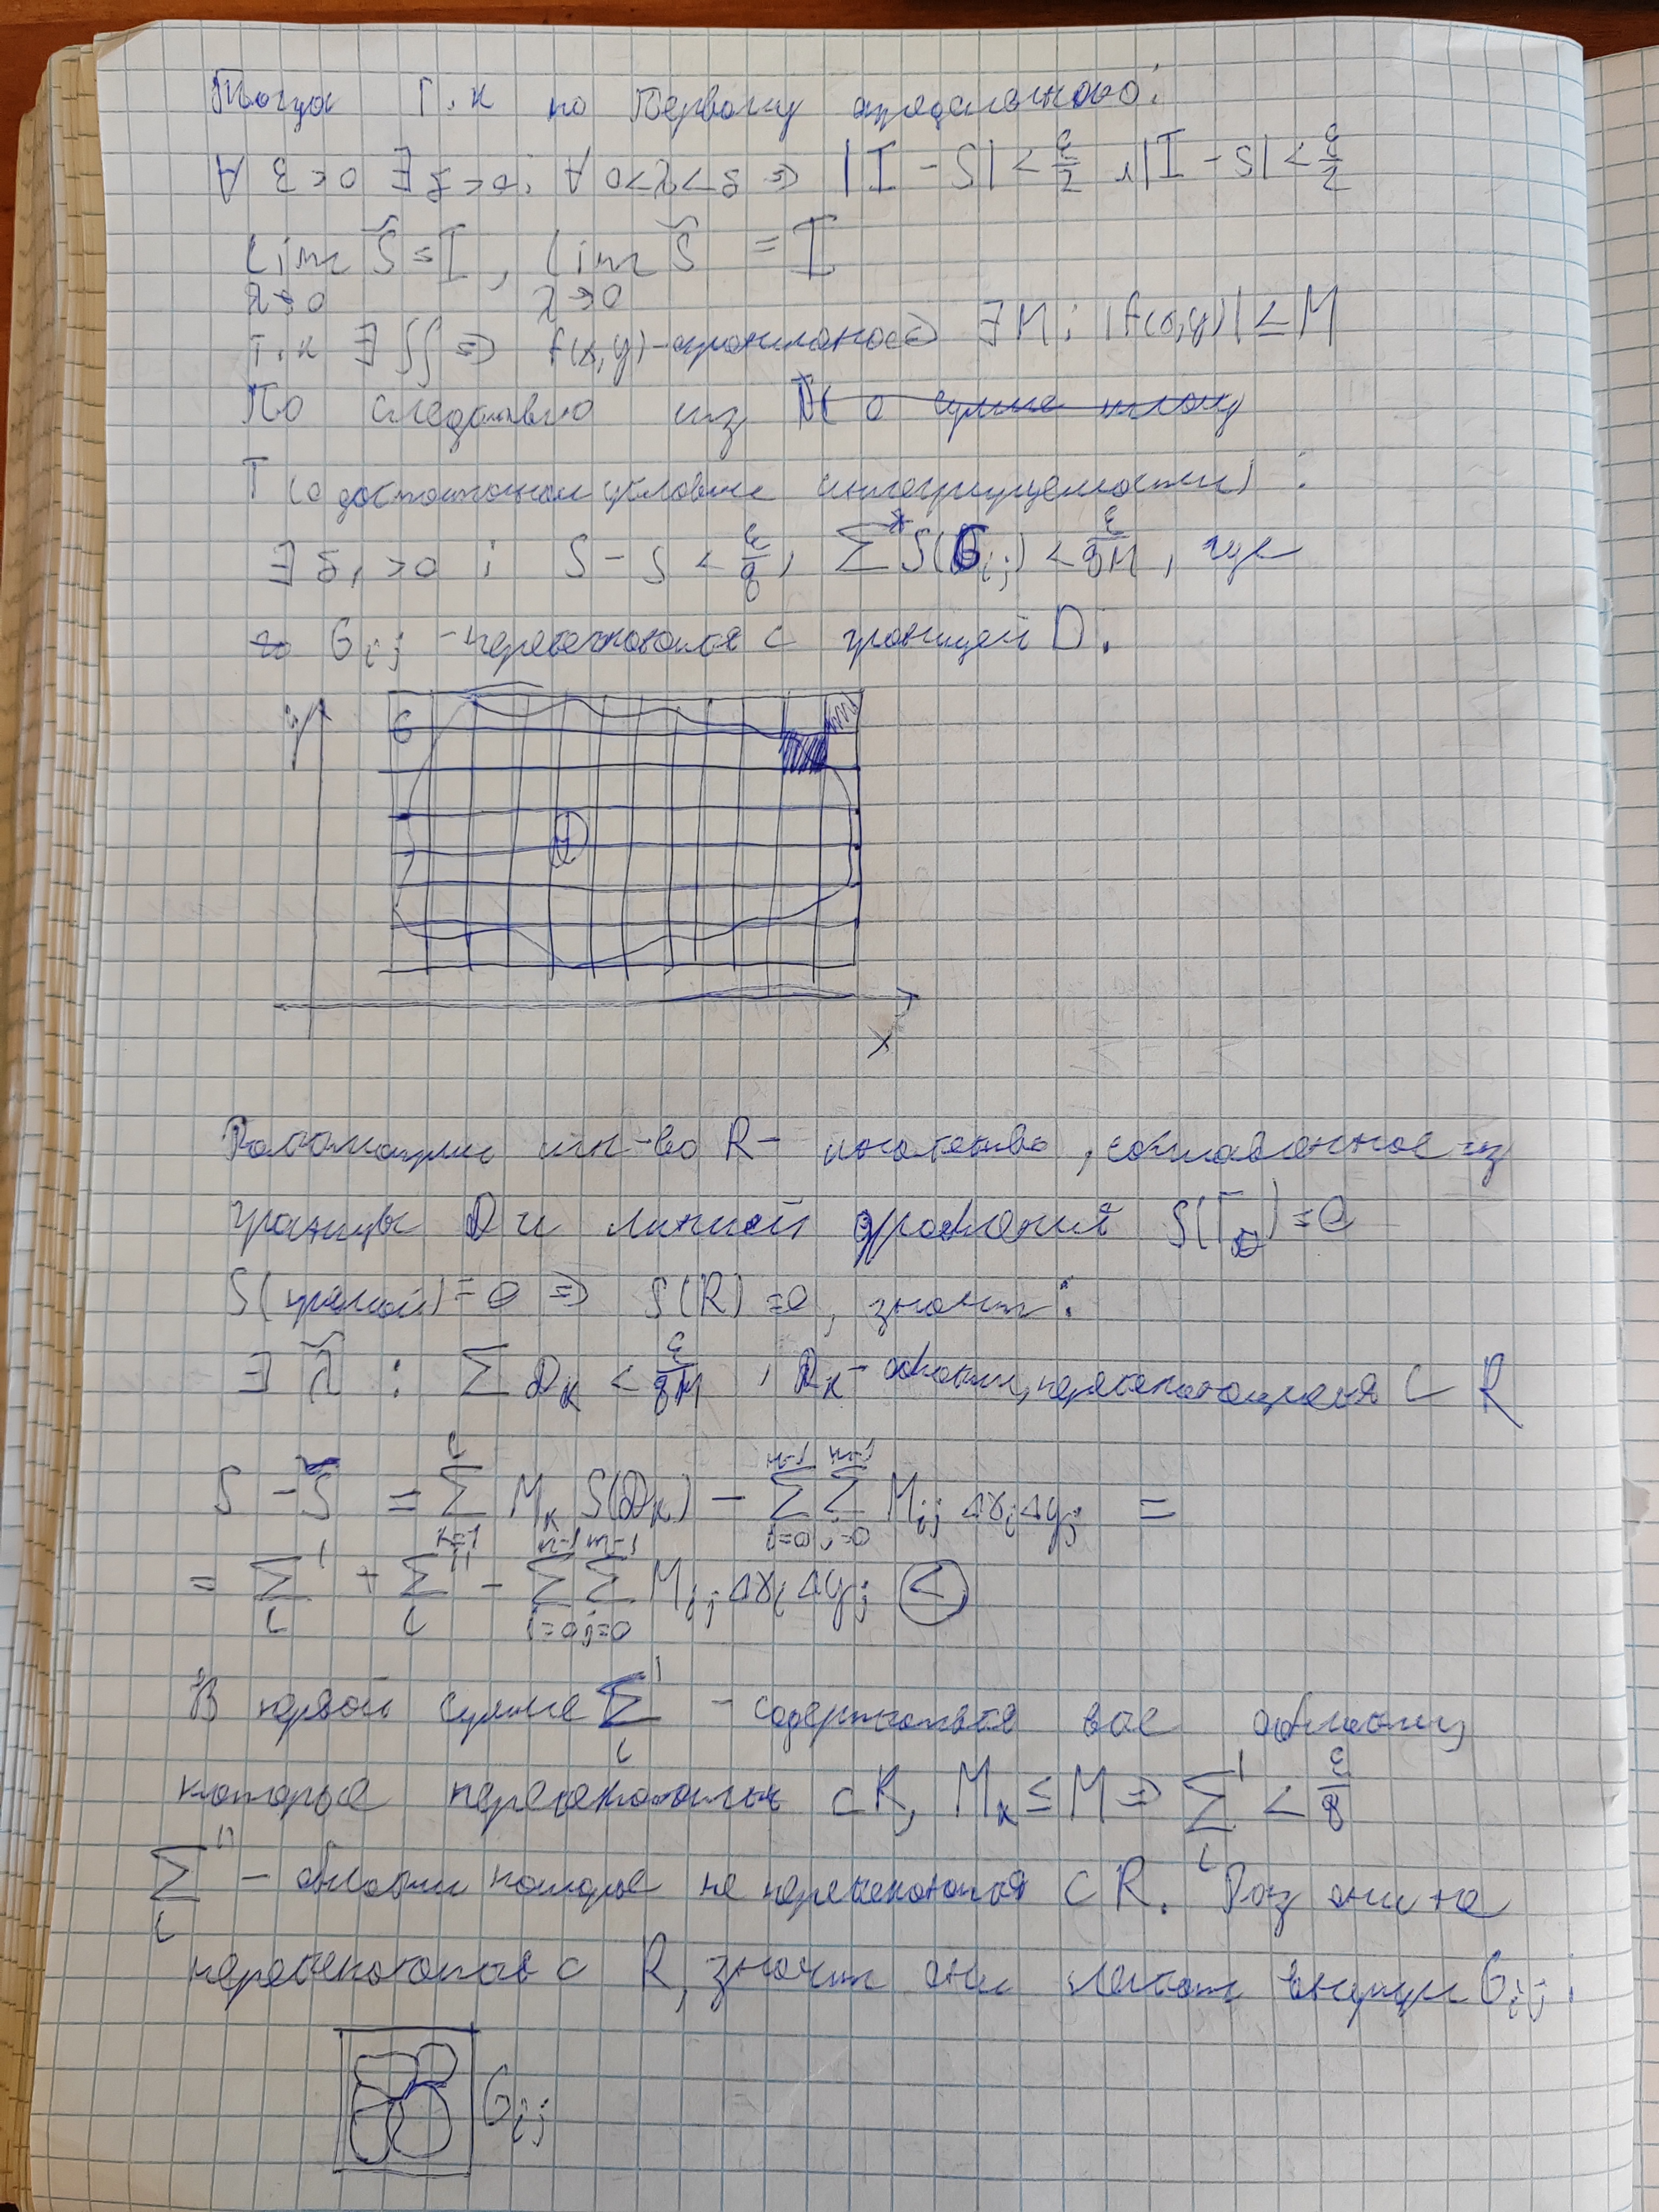 Тогда т.к по первому определению:
∀ ε>0 ∃ δ>0 : ∀ 0<λ<δ ⇒ |I - S| < ε/2 и |I - s| < ε/2
lim S̃ = I , lim s̃ = I
λ→0 λ→0
т.к ∃ ∬ ⇒ f(x,y) - ограничено ⇒ ∃ M : |f(x,y)| ≤ M
По следствию из
Т (о достаточном условии интегрируемости) :
∃ δ₁ > 0 : S - s < ε/8 , ∑* S(G_ij) < ε/8M , где
G_ij - пересекаются с границей D.
y
G
D
x
Рассмотрим мн-во R - множество , составленное из
границы D и линией дробления S(Г_D) = 0
S(прямой) = 0 ⇒ S(R) = 0 , значит :
∃ λ̃ : ∑ D_k < ε/8M , D_k - области, пересекающиеся с R
S - S̃ = ∑ M_k S(D_k) - ∑ ∑ M_ij Δx_i Δy_j =
= ∑' + ∑'' - ∑ ∑ M_ij Δx_i Δy_j ≤
В первой сумме ∑' - содержатся все области,
которые пересекаются с R, M_k ≤ M ⇒ ∑' < ε/8
∑'' - области которые не пересекаются с R. Раз они не
пересекаются с R, значит они лежат внутри G_ij .
G_ij